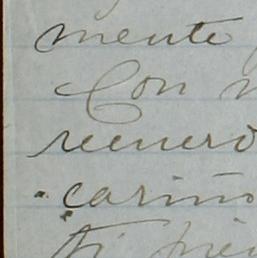 mente
Con
recuerd
cariño
ti